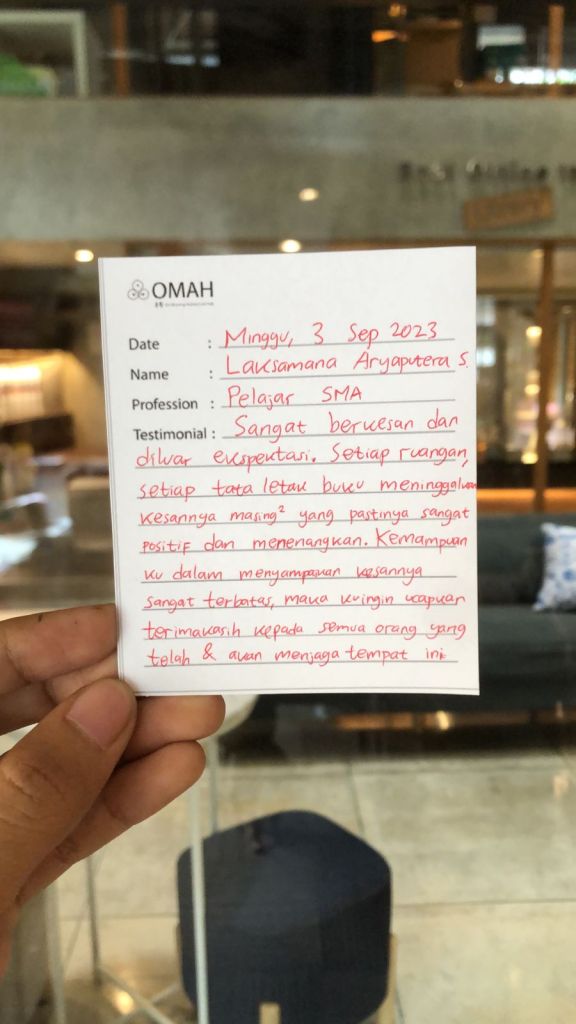 OMAH
Date : Minggu, 3 Sep 2023
Name : Laksamana Aryaputera S.
Profession : Pelajar SMA
Testimonial : Sangat berkesan dan
diluar ekspektasi. Setiap ruangan,
setiap tata letak buku meninggalkan
kesannya masing² yang pastinya sangat
positif dan menenangkan. Kemampuan
ku dalam menyampaikan kesannya
sangat terbatas, maka kuingin ucapkan
terimakasih kepada semua orang yang
telah & akan menjaga tempat ini